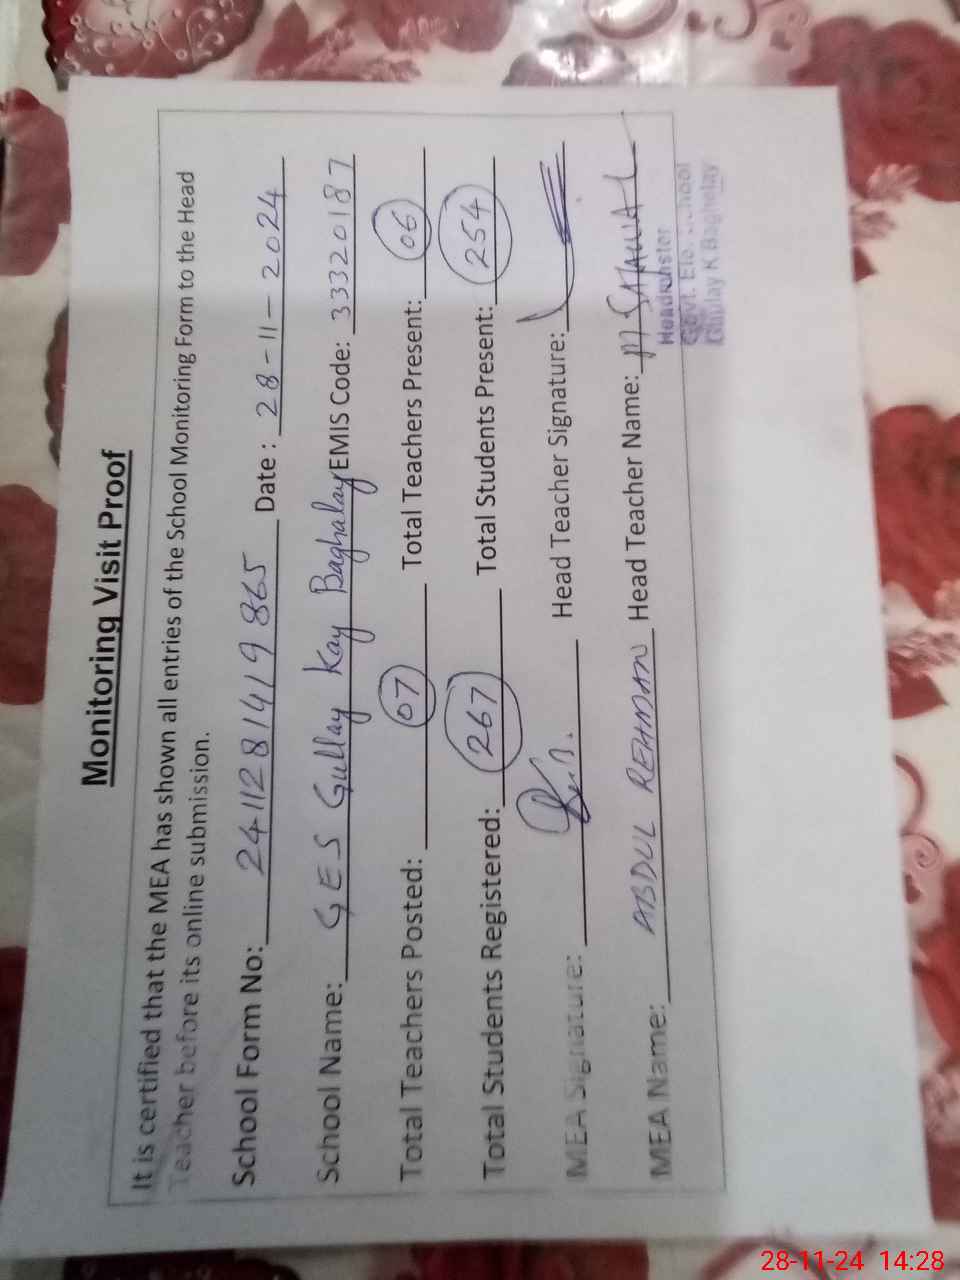 Monitoring Visit Proof
It is certified that the MEA has shown all entries of the School Monitoring Form to the Head
Teacher before its online submission.
School Form No: 2411281419865 Date : 28-11-2024
School Name: GES Gullay Kay Baghalay EMIS Code: 33320187
Total Teachers Posted: 07 Total Teachers Present: 06
Total Students Registered: 267 Total Students Present: 254
MEA Signature: Head Teacher Signature:
MEA Name: ABDUL REHMAN Head Teacher Name: M SAJAWAL
Headmaster
Govt. Ele. School
K Baghelay
28-11-24 14:28